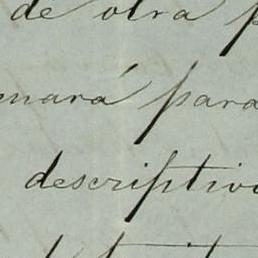 de otra p
mará para
descriptiv